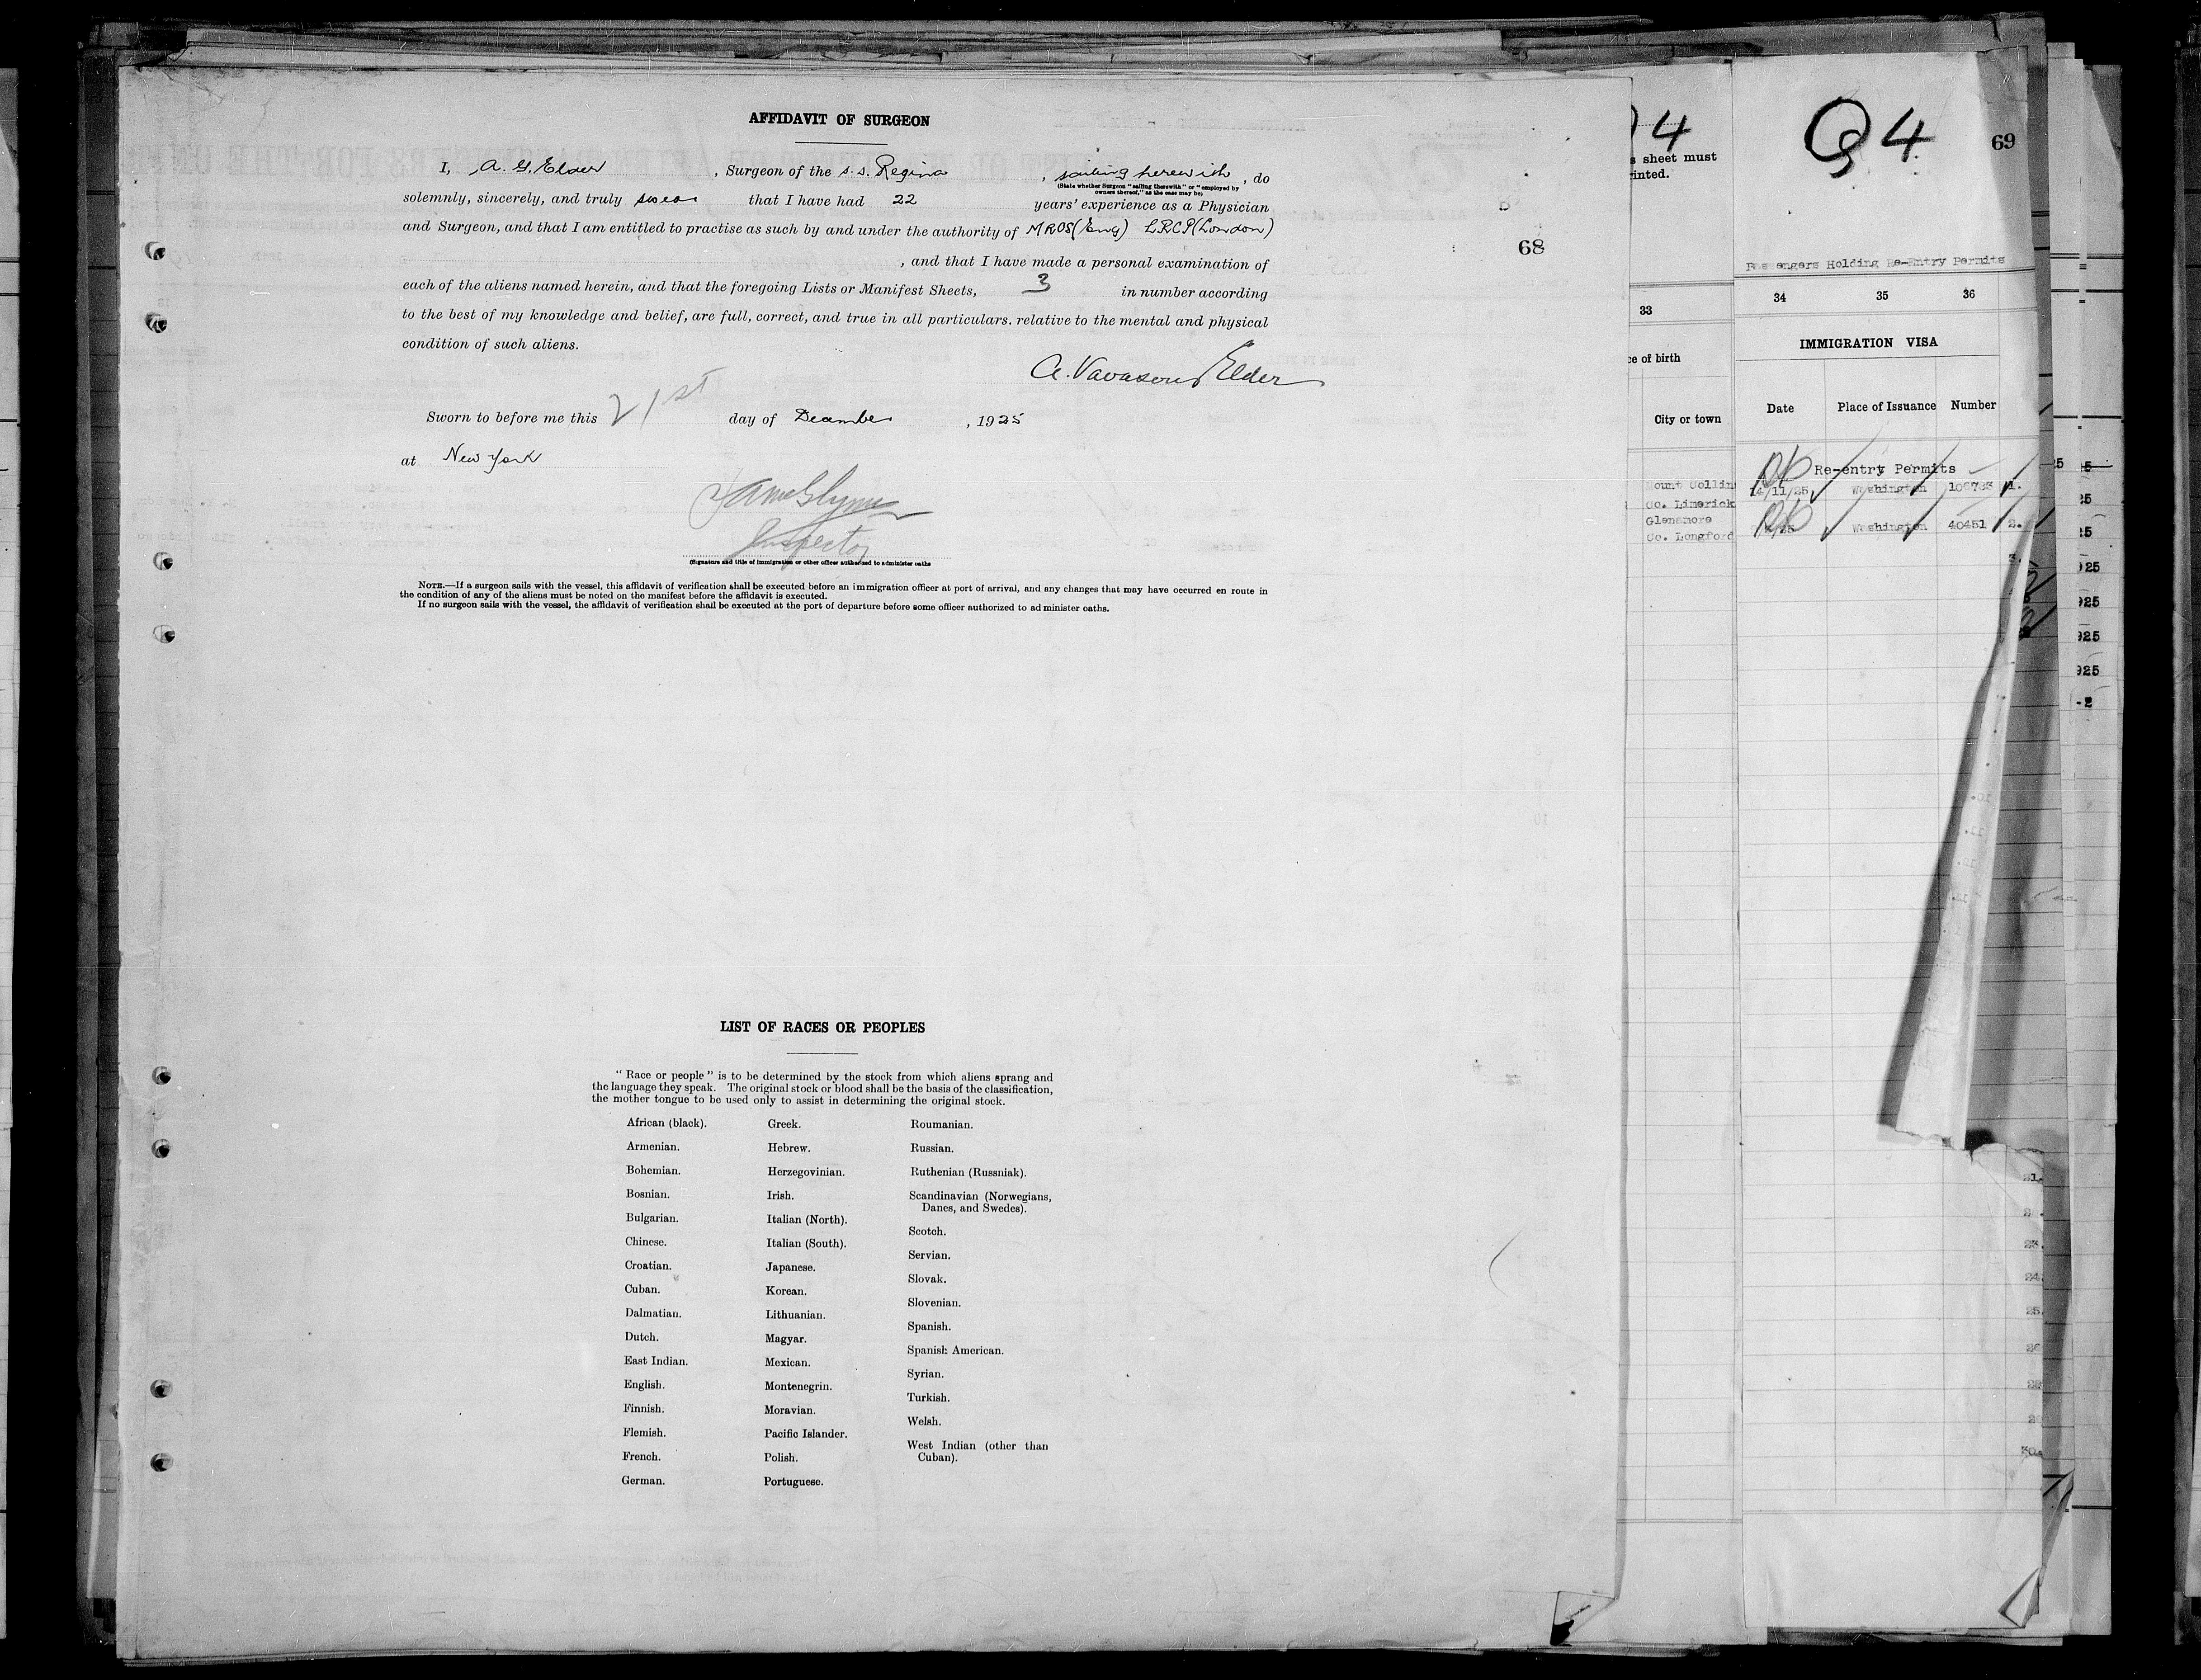 AFFIDAVIT OF SURGEON
I, A. G. Elder , Surgeon of the s.s. Regina , sailing herewith , do
(State whether Surgeon "sailing therewith" or "employed by
owners thereof," as the case may be)
solemnly, sincerely, and truly swear that I have had 22 years' experience as a Physician
and Surgeon, and that I am entitled to practise as such by and under the authority of MRCS (Eng) LRCP (London)
, and that I have made a personal examination of
each of the aliens named herein, and that the foregoing Lists or Manifest Sheets, 3 in number according
to the best of my knowledge and belief, are full, correct, and true in all particulars. relative to the mental and physical
condition of such aliens.
A. Vavasour Elder
Sworn to before me this 21st day of December , 1925
at New York
Inspector
(Signature and title of immigration or other officer authorized to administer oaths
NOTE.—If a surgeon sails with the vessel, this affidavit of verification shall be executed before an immigration officer at port of arrival, and any changes that may have occurred en route in
the condition of any of the aliens must be noted on the manifest before the affidavit is executed.
If no surgeon sails with the vessel, the affidavit of verification shall be executed at the port of departure before some officer authorized to administer oaths.
68
LIST OF RACES OR PEOPLES
" Race or people " is to be determined by the stock from which aliens sprang and
the language they speak. The original stock or blood shall be the basis of the classification,
the mother tongue to be used only to assist in determining the original stock.
African (black).
Armenian.
Bohemian.
Bosnian.
Bulgarian.
Chinese.
Croatian.
Cuban.
Dalmatian.
Dutch.
East Indian.
English.
Finnish.
Flemish.
French.
German.
Greek.
Hebrew.
Herzegovinian.
Irish.
Italian (North).
Italian (South).
Japanese.
Korean.
Lithuanian.
Magyar.
Mexican.
Montenegrin.
Moravian.
Pacific Islander.
Polish.
Portuguese.
Roumanian.
Russian.
Ruthenian (Russniak).
Scandinavian (Norwegians,
Danes, and Swedes).
Scotch.
Servian.
Slovak.
Slovenian.
Spanish.
Spanish American.
Syrian.
Turkish.
Welsh.
West Indian (other than
Cuban).
4
s sheet must
rinted.
33
ce of birth
City or town
Mount Collin
Co. Limerick
Glenmore
Co. Longford
4
69
Passengers Holding Re-Entry Permits
34 35 36
IMMIGRATION VISA
Date Place of Issuance Number
Re-entry Permits
14/11/25 Washington 1.
Washington 40451 2.